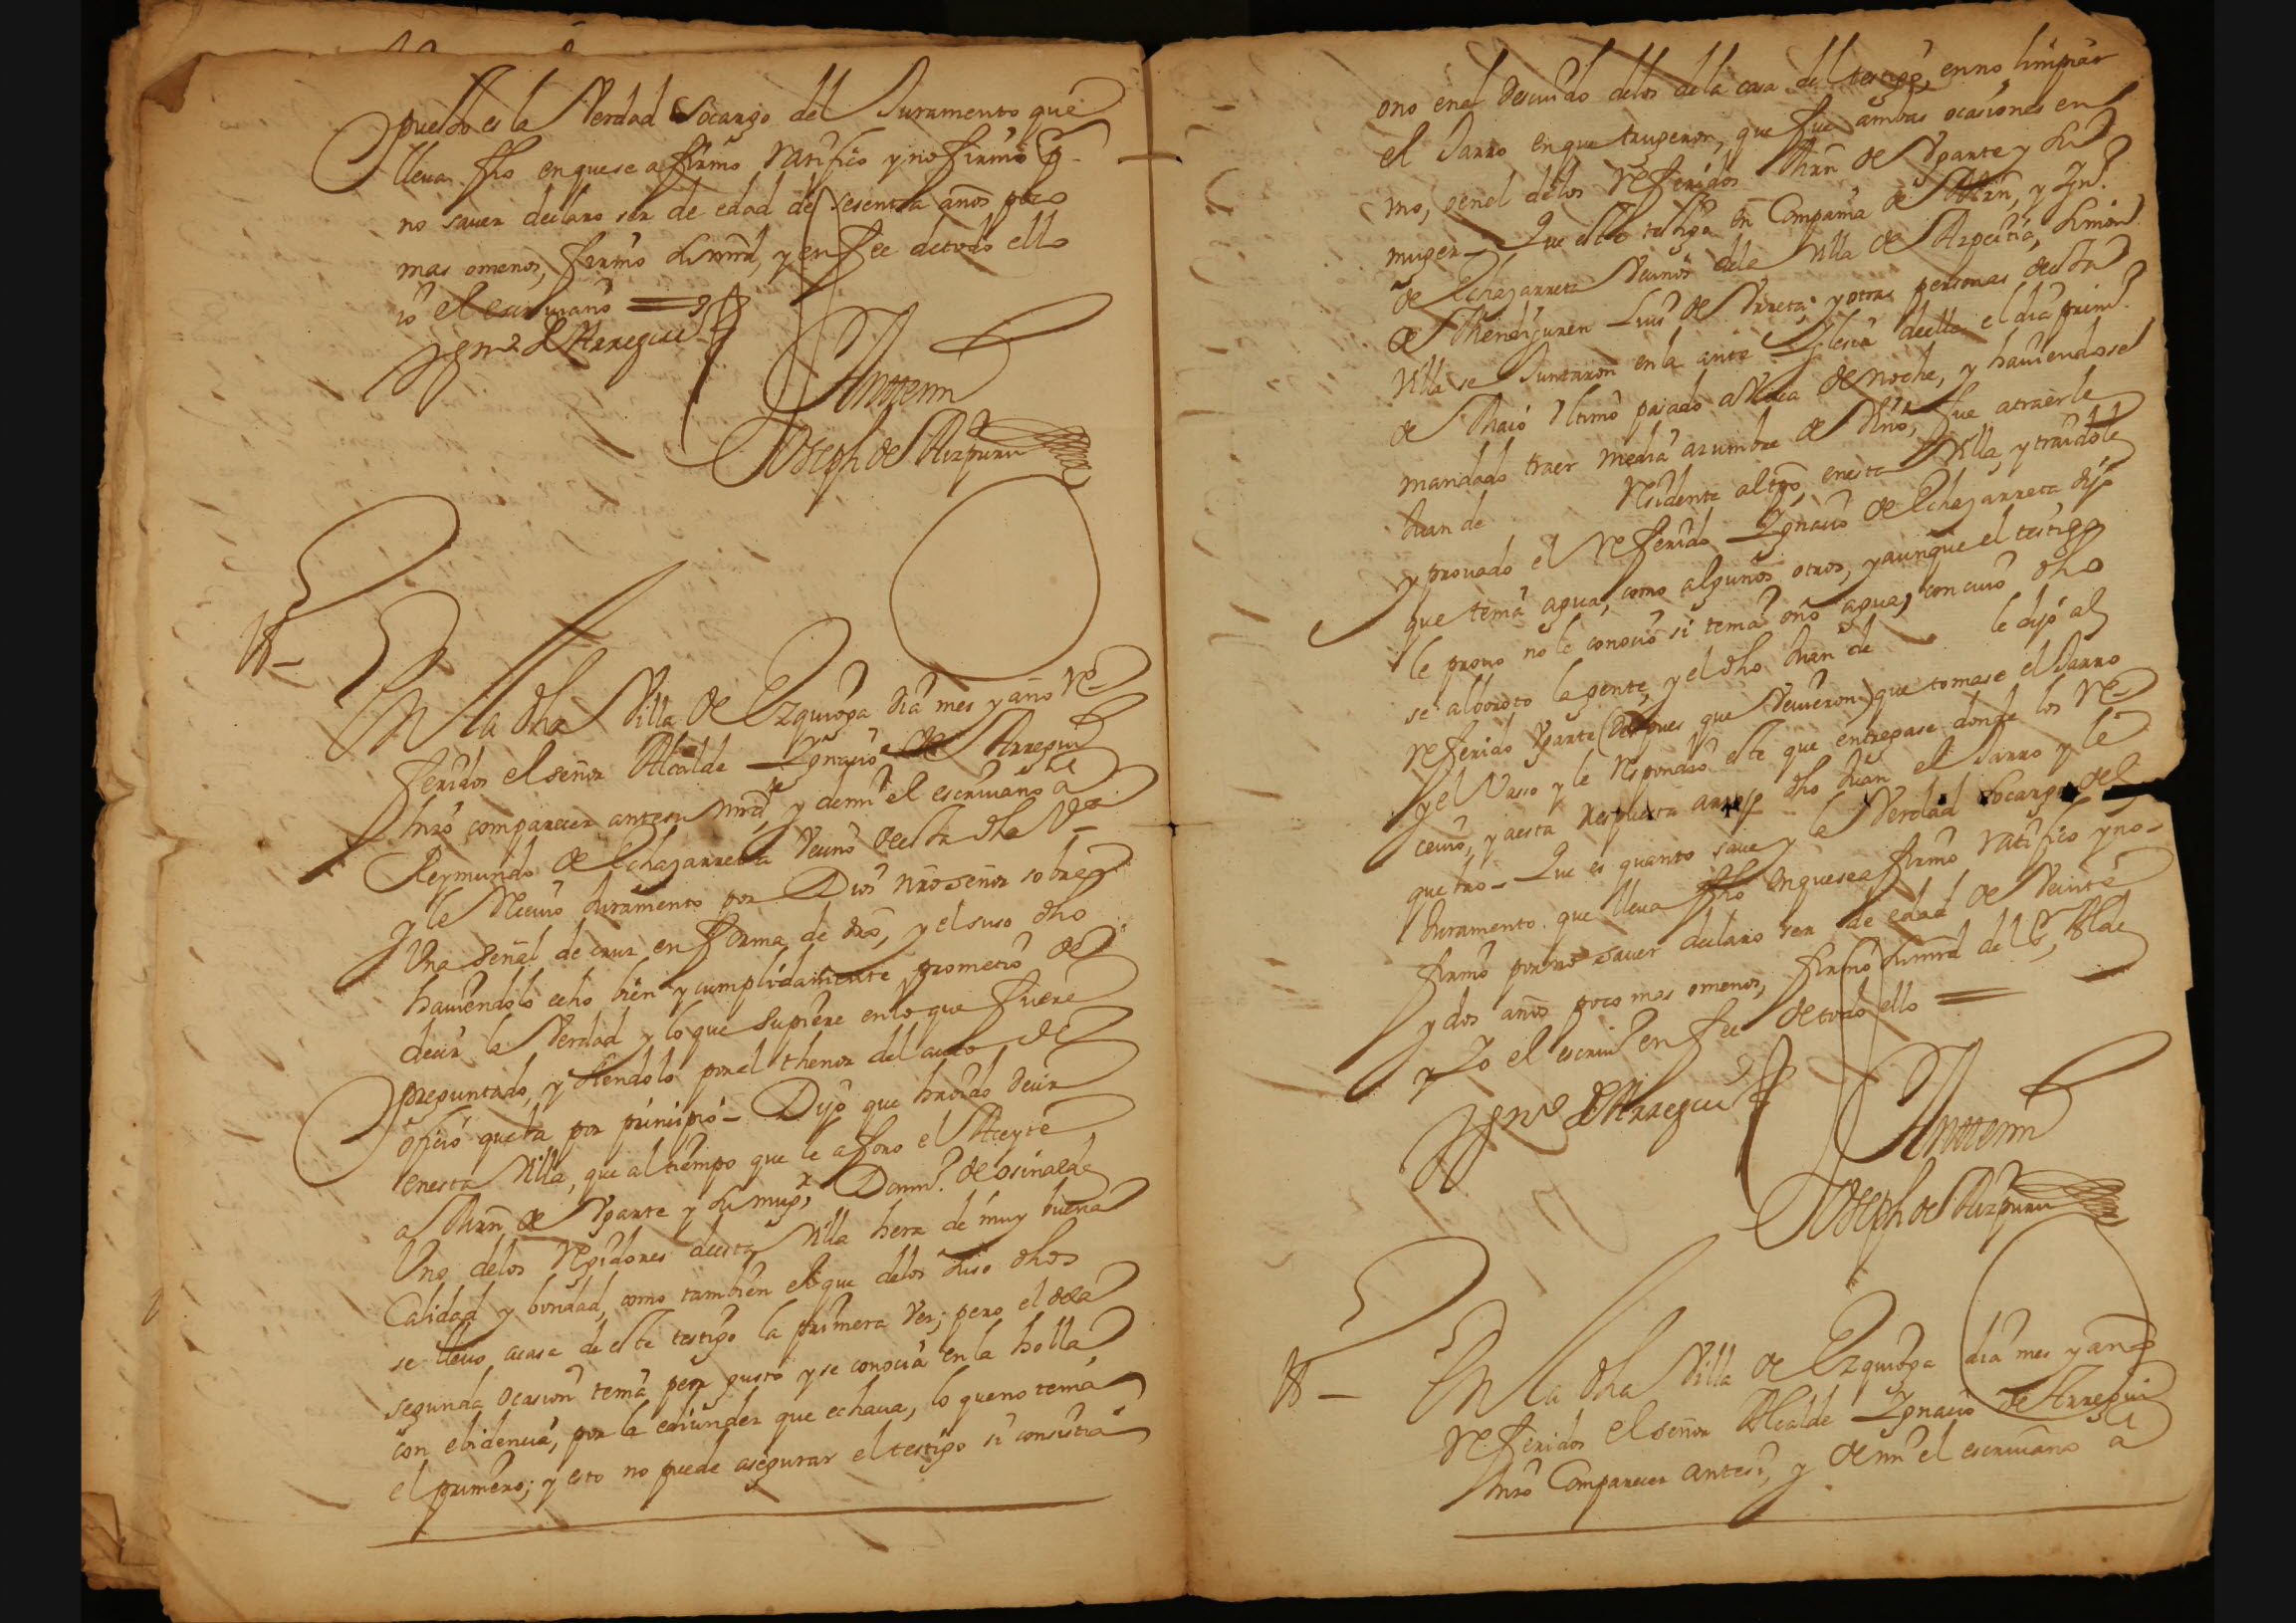 puesto es la Verdad Socargo del Juramento que
lleva fho en que se afirmo Ratifico y no firmo por
no saver declaro ser de edad de sesenta años poco
mas o menos, firmo su mrd, y en fee de todo ello
io el escriuano =
Ygnº de Arregui
Antte mi
Joseph de Aizpuru
En la dha Villa de Ezquioga dia mes y año re-
feridos el señor Alcalde Ygnacio de Arregui
hizo comparecer ante su mrd, y de mi el escriuano a
Reymundo de Echazarreta vecino de esta dha Vª
y le reciuio Juramento por Dios nro señor sobre
Una señal de cruz en forma de dro, y el suso dho
haviendolo echo bien y cumplidamente prometio de
decir la Verdad y lo que supiere en lo que fuere
preguntado, y siendolo por el thenor del auto de
oficio questa por principio - Dijo que ha oido decir
en esta Villa, que al tiempo que le aforo el Aceyte
a Mrn de Ugarte y su mugr, Domº de osinalde
Uno de los Regidores de esta Villa hera de muy buena
Calidad y bondad, como tambien el que de los suso dhos
se lleuo a casa de este testigo la primera Vez; pero el de la
segunda ocasion tenia peor gusto y se conocia en la holla
con ebidencia, por la ediundez que echaua, lo que no tenia
el primero; y esto no puede asegurar el testigo si consistia
ono en el descuido de los de la casa del testigo, en no limpiar
el Jarro en que trugeron, que fue ambas ocasiones en
mo, o en el de los referidos Mrn de Ugarte y su
muger - Que este testigo en Compañia de Mrn, y Ygnº
de Echazarreta vecinos de la Villa de Azpeitia, Simon
de Mendiguren Luis de Urreta, y otras personas de esta
Villa se Juntaron en la ante Yglesia de ella el dia primº
de Maio Ultimo pasado a Vista de noche, y haviendose
mandado traer media azumbre de Vino, fue a traerle
Juan de residente al tpo en esta Villa, y traidole
y prouado el referido Ygnacio de Echazarreta dijo
que tenia agua, como algunos otros, y aunque el testigo
le prouo no le conocio si tenia o no agua, con cuio dho
se alboroto la gente, y el dho Juan de le dijo al
referido Ugarte (despues que veuieron) que tomase el Jarro
y el Vasso y le respondio este que entregase donde los re-
ceuio, y a esta respuesta dho Juan el Jarro y le
que - Que es quanto saue y la Verdad socargo del
Juramento que lleua fho en que se afirmo ratifico y no
firmo por no saver declaro ser de edad de Veinte
y dos años poco mas o menos, firmo su mrd del Sr Alde
y Yo el escriuº en fee de todo ello =
Ygnº de Arregui
Antte mi
Joseph de Aizpuru
En la dha Villa de Ezquioga dia mes y año
referidos el señor Alcalde Ygnacio de Arregui
hizo Comparecer ante si, y de mi el escriuano a